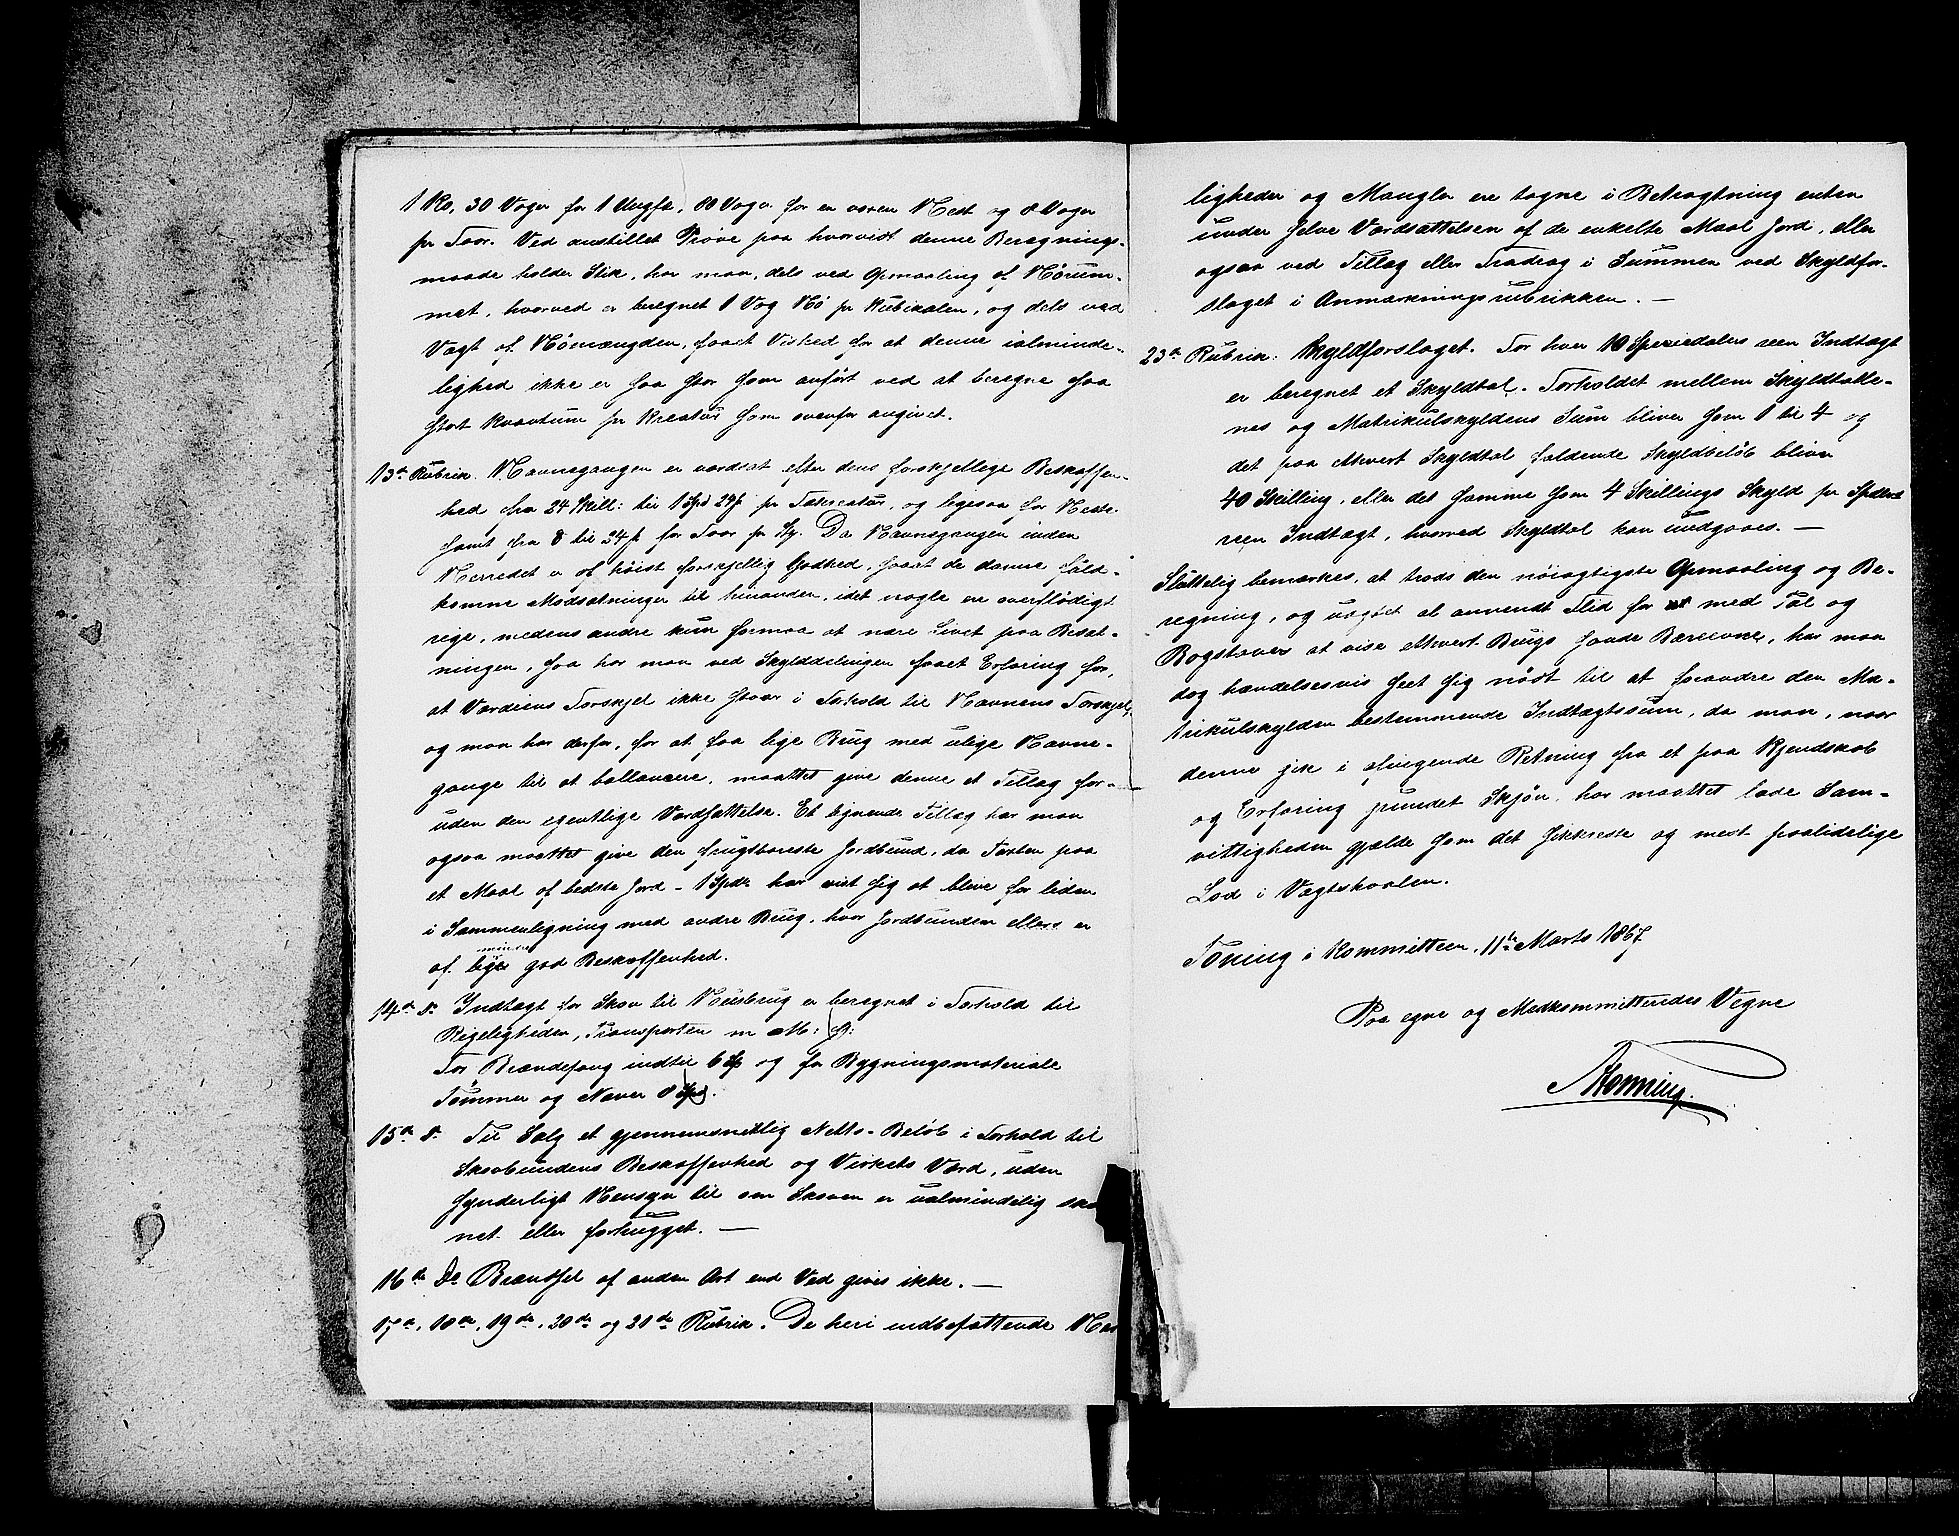 1 Ko, 30 Voger for 1 Ungfæ, 80 Voger for en voxen Hest og 8 Voger
pr Foor. Ved anstillet Prøve paa hvorvidt denne Beregnings-
maade holder Stik, har man, dels ved Opmaaling af Hørum-
met, hvorved er beregnet 1 Vog Hø pr Kubikalen, og dels ved
Vægt af Hømængden, faaet Vished for at denne ialminde-
lighed ikke er saa stor som anført ved at beregne saa
stort Kvantum pr Kreatur som ovenfor angivet.
13de Rubrik. Havnegangen er værdsat efter dens forskjellige Beskaffen-
hed fra 24 Skill: til 1 Spd 24 s pr Fækreatur, og ligesaa for Heste
samt fra 8 til 24 s for Foor pr St. Da Havnegangen inden
Herredet er af høist forskjellig Godhed, saaat de danne fuld-
komne Modsætninger til hinanden, idet nogle ere overflødigt
rige, medens andre kun formaa at nære Livet paa Besæt-
ningen, saa har man ved Skylddelingen faaet Erfaring for,
at Værdiens Forskjel ikke staar i Forhold til Havnens Forskjel,
og man har derfor, for at faa lige Brug med ulige Havne-
gange til at ballancere, maattet give denne et Tillæg for-
uden den egentlige Værdsættelse. Et lignende Tillæg har man
ogsaa maattet give den frugtbareste Jordbund, da Taxten paa
et Maal af bedste Jord - 1 Spdr har vist sig at blive for liden
i Sammenligning med andre Brug, hvor Jordbunden ellers er
mindre
af lige god Beskaffenhed.
14de do Indtægt for Skov til Huusbrug er beregnet i Forhold til
Rigeligheden, Transporten m M:
For Brændefang indtil 6 Spd og for Bygningsmateriale
Tømmer og Næver 8 Spd.
15de do Til Salg et gjennemsnitlig Netto-Beløb i Forhold til
Skovbundens Beskaffenhed og Virkets Værd, uden
synderligt Hensyn til om Skoven er ualmindelig skaa
net eller forhugget. —
16de Do Brændsel af anden Art end Ved gives ikke. —
17de, 18de, 19de, 20de og 21de Rubrik. De heri indbefattende Her
ligheder og Mangler ere tagne i Betragtning enten
under selve Værdsættelsen af de enkelte Maal Jord, eller
ogsaa ved Tillæg eller Fradrag i Summen ved Skyldfor-
slaget i Anmærkningsrubrikken. —
23de Rubrik: Skyldforslaget. For hver 10 Speciedalers reen Indtægt
er beregnet et Skyldtal. Forholdet mellem Skyldtalle-
nes og Matrikulskyldens Sum bliver som 1 til 4 og
det paa Ethvert Skyldtal faldende Skyldbeløb bliver
40 Skilling, eller det samme som 4 Skillings Skyld pr Spdlers
reen Indtægt, hvorved Skyldtal kan undgaaes. —
Sluttelig bemærkes, at trods den nøiagtigste Opmaaling og Be-
regning, og uagtet al anvendt Flid for med Tal og
Bogstaver at vise ethvert Brugs sande Bæreevne, har man
dog hændelsesvis seet sig nødt til at forandre den Ma-
trikulskylden bestemmende Indtægtssum, da man, naar
denne gik i afvigende Retning fra et paa Kjendskab
og Erfaring grundet Skjøn, har maattet lade Sam-
vittigheden gjælde som det sikkreste og mest paalidelige
Lod i Vægtskaalen.
Foning i Kommitteen, 11te Marts 1867
Paa egne og Medkommitteredes Vegne